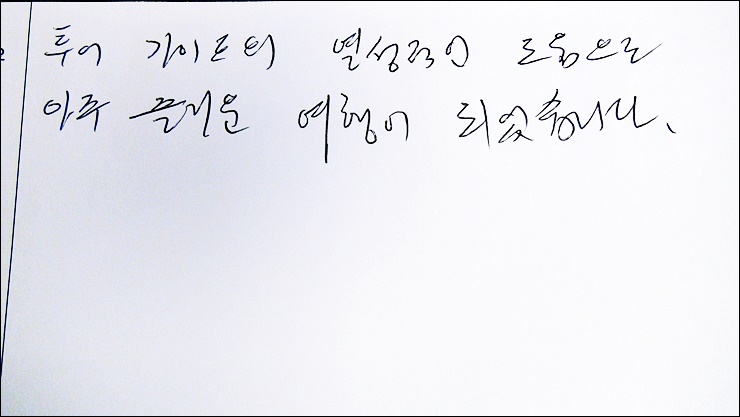 투어 가이드의 열성적인 도움으로
아주 즐거운 여행이 되었습니다.